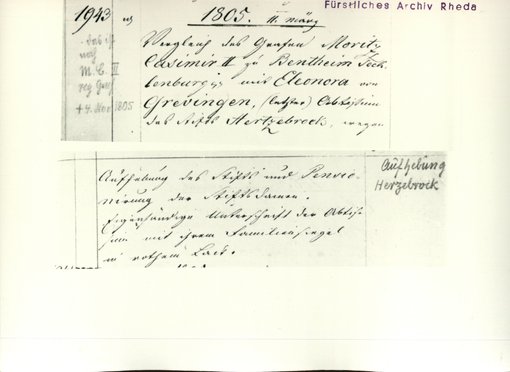 Fürstliches Archiv Rheda
1943 1805. 11. März
Vergleich des Grafen Moritz
Casimir II zu Bentheim Teck
lenburg mit Eleonora von
Grevingen, (letzter) Äbtissin
des Stifts Hertzebrock, wegen
das ist
noch
M. C. II
reg Graf
+ 4. Nov 1805
Aufhebung des Stifts und Pensio-
nirung der Stiftsdamen.
Eigenhändige Unterschrift der Äbtis-
sin mit ihrem Familiensiegel
in rothem Lack.
Aufhebung
Herzebrock